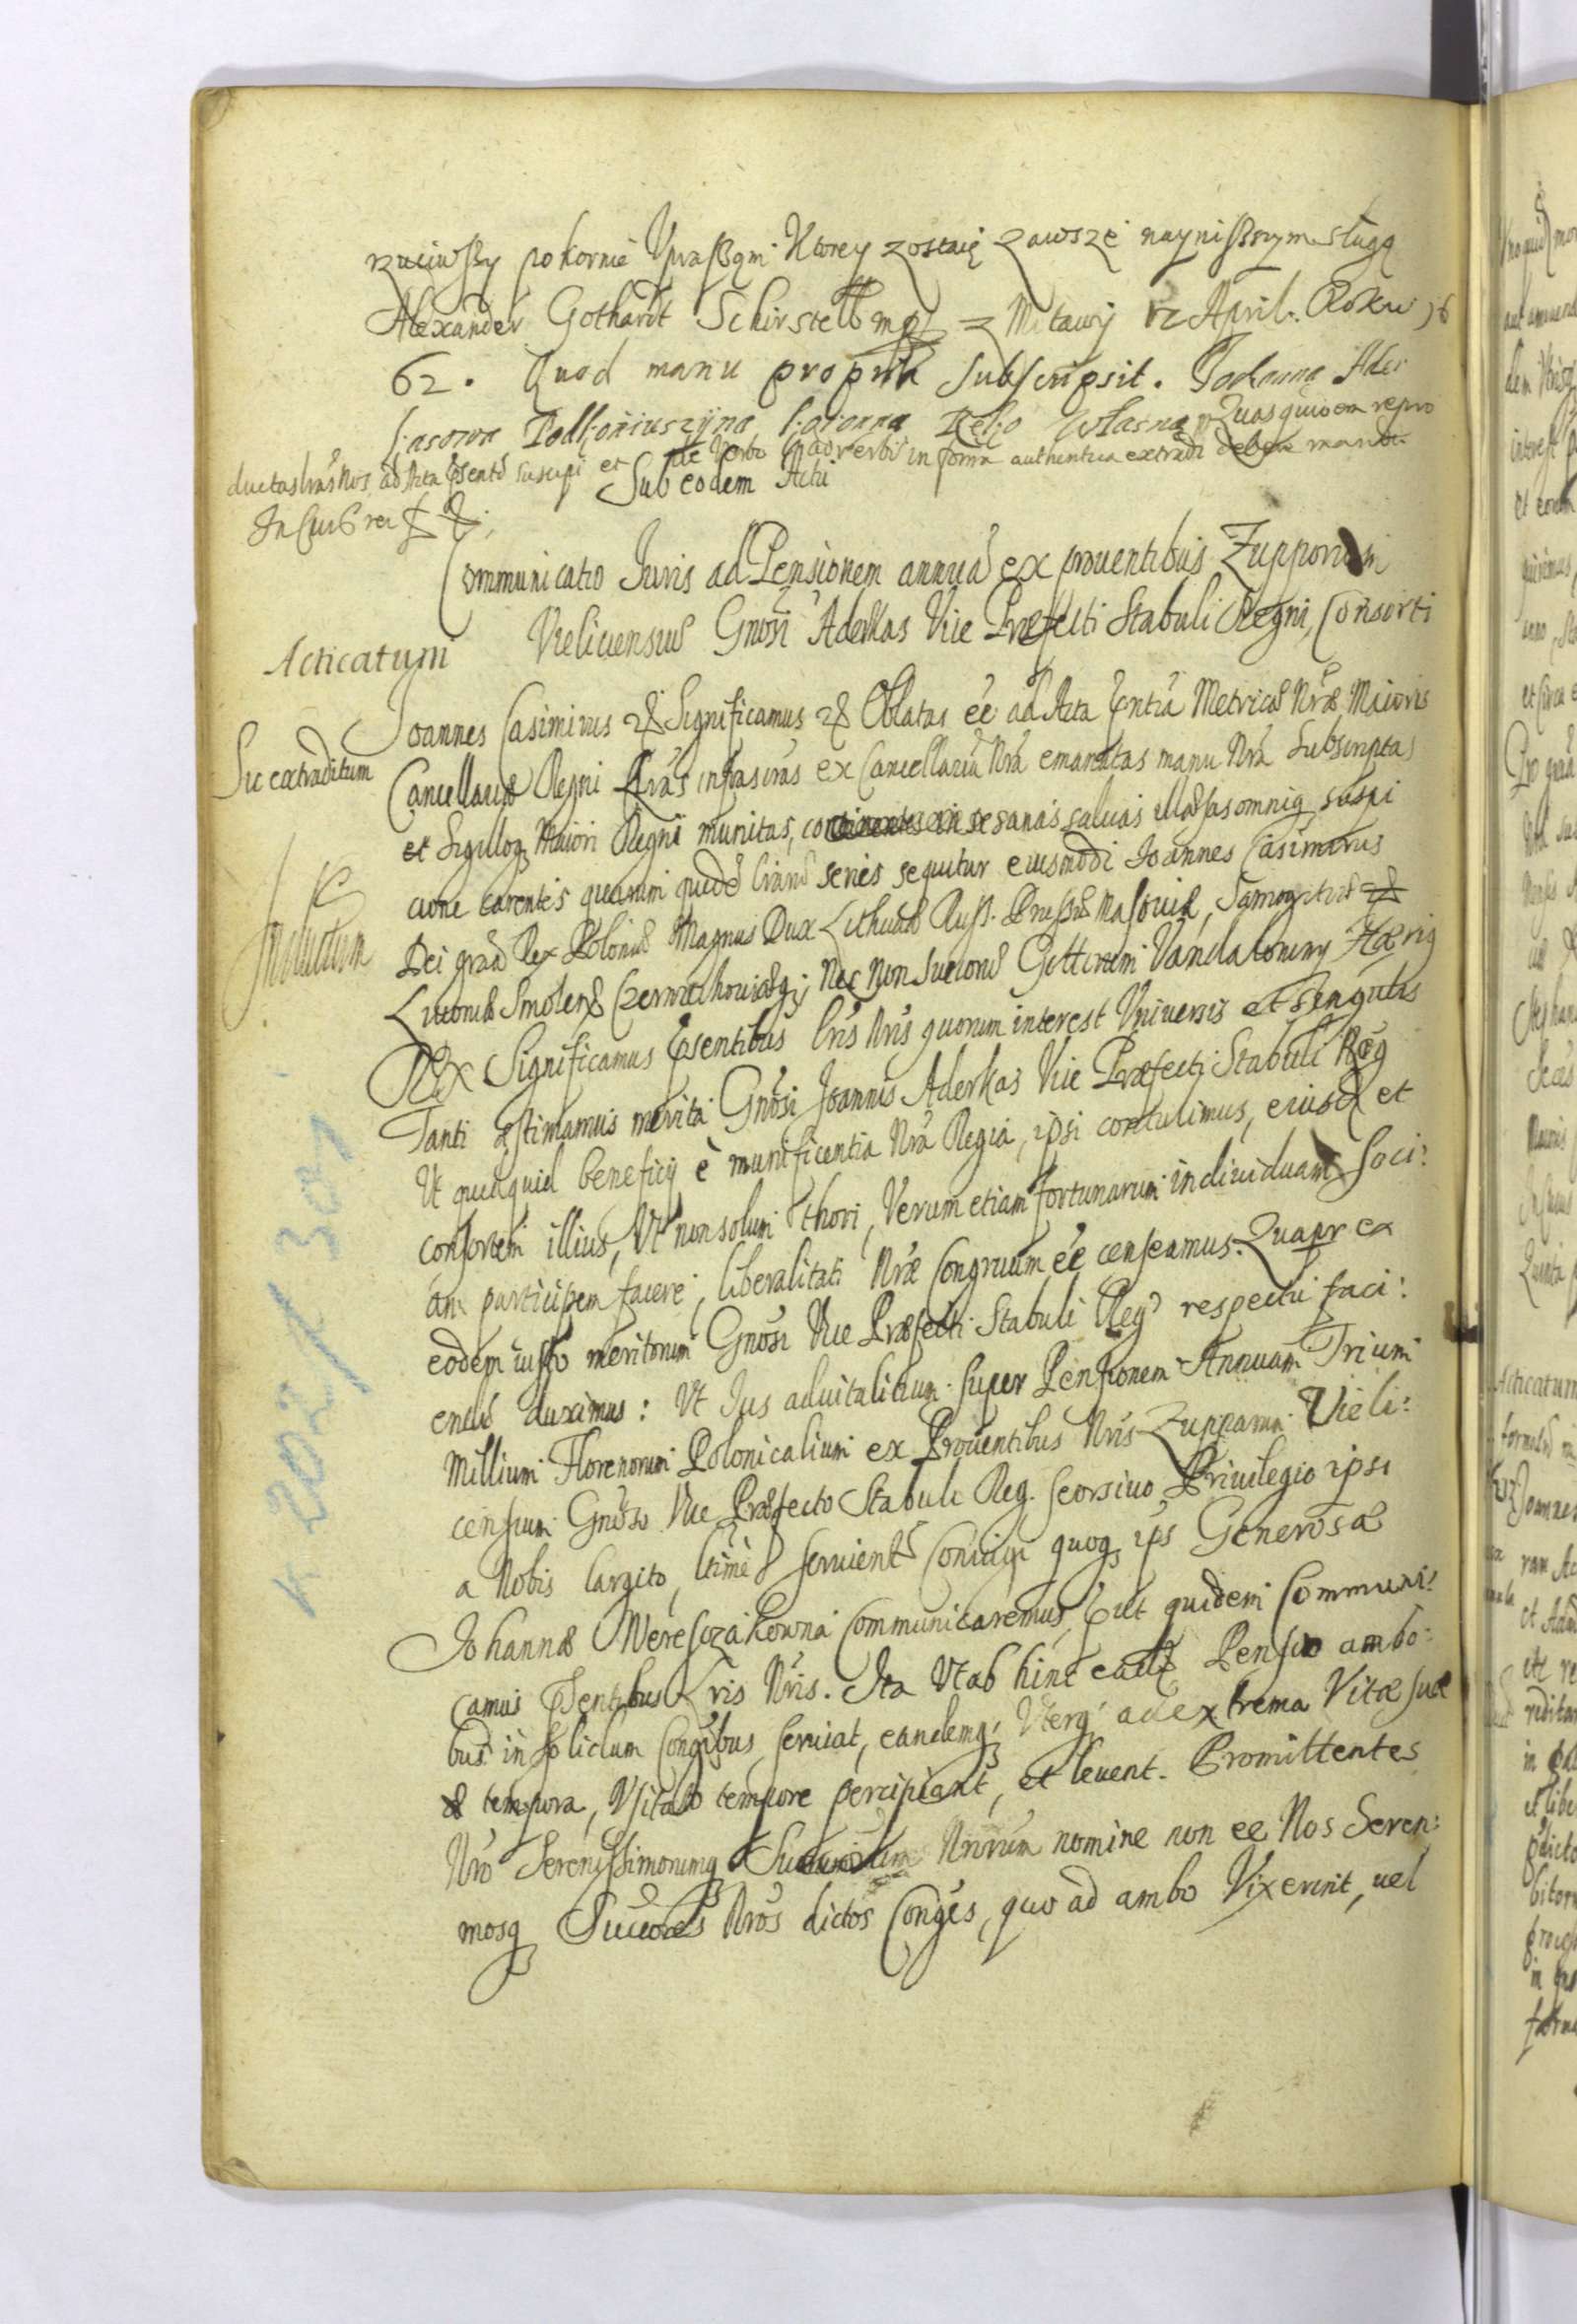 rzuciwszy pokornie Upraszam Ktorey zostaię zawsze nayniższym sługą
Alexander Gothardt Schirstell mp z Mitawy 12 April. Roku 16
62. Quod manu propria subscripsit. Johanna Ader
kasowa Podkoniuszyna koronna Ręką własną Quas quidem repro
ductas lras Nos ad Acta psentia suscepi et de verbo ad verbū in forma authentica extradi
In Cuis rei &
Sub eodem Actu
Communicatio Iuris ad Pensionem annuā ex prouentibus Zupporum
Vieliciensiū Gnosi Aderkas Vice Præfecti Stabuli Regni, Consorti
Acticatum
Joannes Casimirus & Significamus & Oblatas eē ad Acta pntia Metrices Nræ Maioris
Sic extraditum
Cancellariæ Regni Lras infrascras ex Cancellaria Nra emanatas manu Nra Subscriptas
et Sigilloq Maiori Regni munitas, sanas saluas illæsas omniq suspi
cione carentes quarum quidē series sequitur eiusmodi Joannes Casimirus
Inducum
Dei gra Rex Poloniæ Magnus Dux Lithuaæ Russ. Prussiæ Masouiæ, Samogitiæ
Liuoniæ Smolens Czerniechouiæq; Nec Non Suecorū Gottorum Vandalorumq Hærig
REX Significamus psentibus lris Nris quorum interest Vniuersis et singulis
Tanti æstimamus merita Gnosi Joannis Aderkas Vice Præfecti Stabuli Reg
Vt quidquid beneficij è munificentia Nra Regia, ipsi contulimus, eiusd et
consortem illius, Vt non solum thori, Verum etiam fortunarum indiuiduam soci:
am participem facere, liberalitati Nræ Congruum eē censeamus. Quapr ex
eodem iusto meritorum Gnosi Vice Præfecti Stabuli Reg respectu faci:
endū duximus: Vt Jus aduitalitium super Pensionem Annuam Trium
Millium Florenorum Polonicalium ex Prouentibus Nris Zupparum Vieli:
censium Gnoso Vice Præfecto Stabuli Reg. seorsiuo Priuilegio ipsi
a Nobis largito, ltime seruient Coniugi quoq ips Generosæ
Johannæ Weresczakowna Communicaremus, put quidem Communi:
camus psentibus Lris Nris. Ita Vt ab hinc eadē Pensio ambo:
bus in solidum Congibus seruiat, eandemq; Vterq; ad extrema Vitæ suæ
tempora, Vsitato tempore percipiant, et leuent. Promittentes
Nro Serenissimorumq Nrorum nomine non eē Nos Seren:
mosq Succores Nros dictos Conges, quo ad ambo Vixerint, uel
k 202 / 301